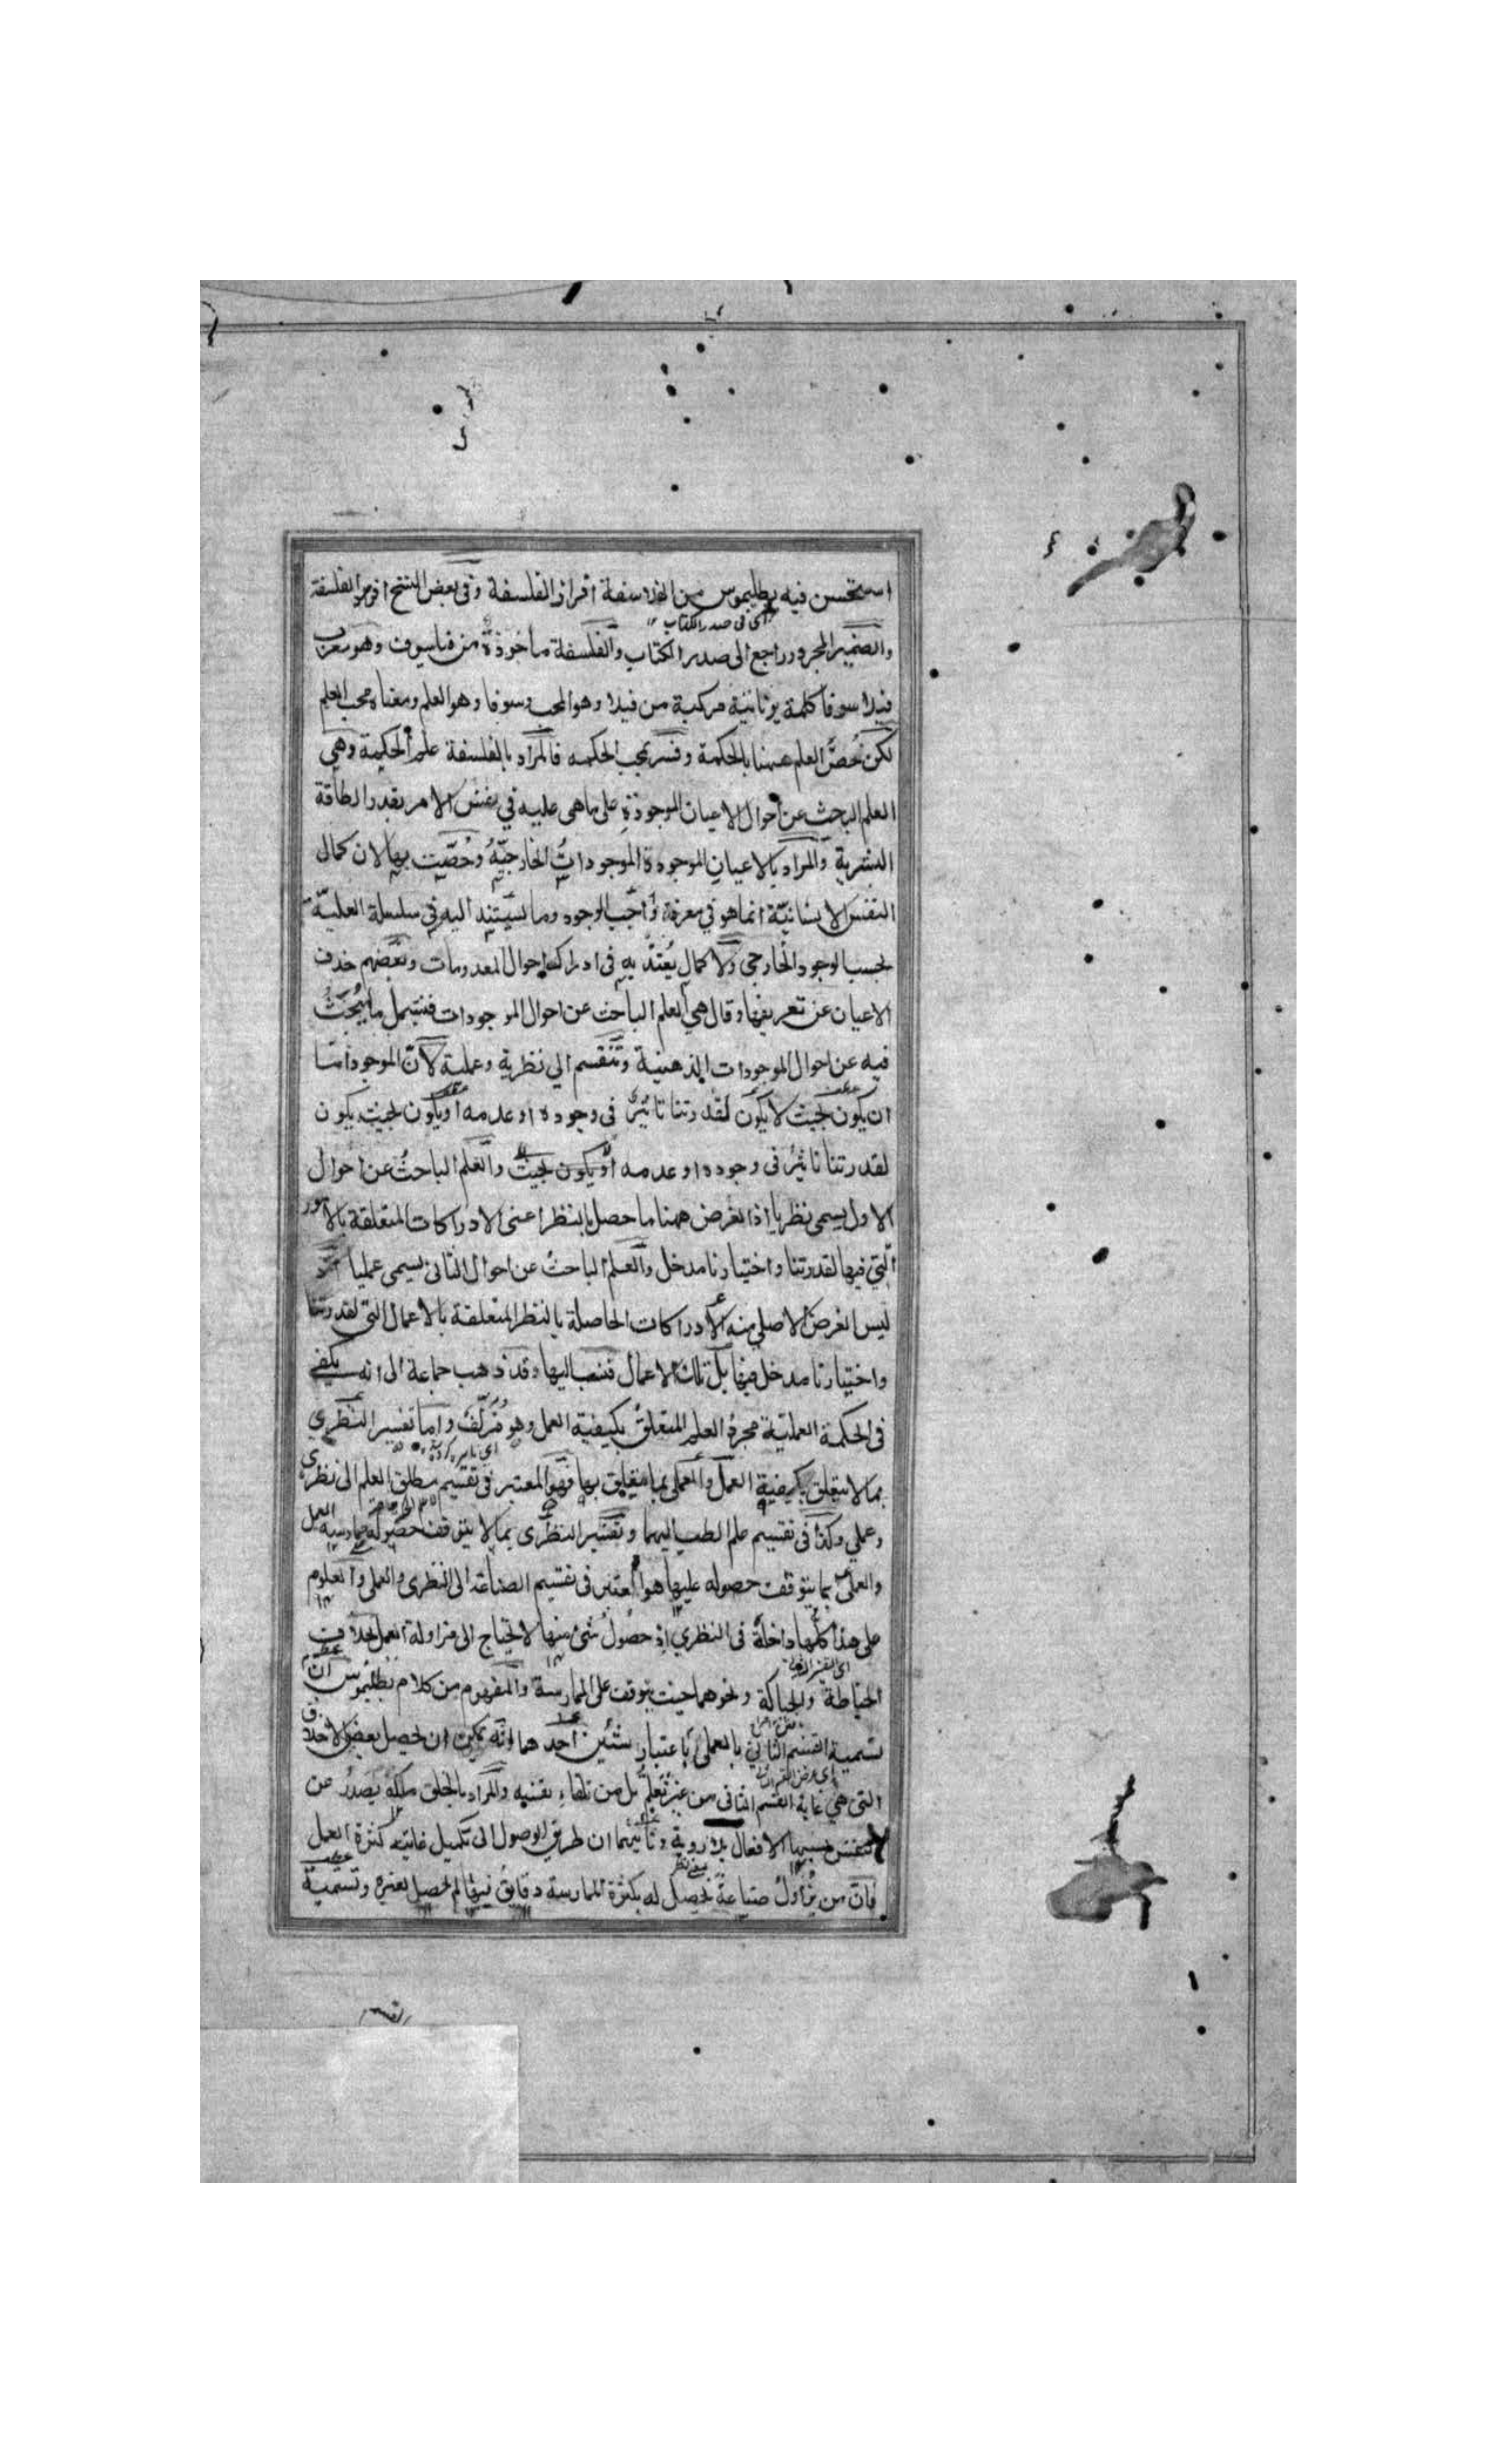 استحسن فيه بطليموس من الفلاسفة افراز الفلسفة وفى بعض النسخ افرز الفلسفة
اى فى صدر الكتاب
والضمير المجرور راجع الى صدر الكتاب والفلسفة ماخوذة من فيلسوف وهو معرب
فيلا سوفا كلمة يونانية مركبة من فيلا وهو المحب وسوفا وهو العلم ومعناه محب العلم
لكن خُصَّ العلم ههنا بالحكمة وفسر بمحب الحكمه فالمراد بالفلسفة علم الحكمة وهى
العلم الباحث عن احوال الاعيان الموجودة على ما هى عليه فى نفس الامر بقدر الطاقة
البشرية والمراد بالاعيان الموجودة الموجودات الخارجيّة وخُصّت بها لان كمال
النفس الانسانيّة انما هو فى معرفة واجب الوجود وما يستند اليه فى سلسلة العليّة
بحسب الوجود الخارجى ولا كمال يُعتدّ به فى ادراك احوال المعدومات وبعضهم حذف
الاعيان عن تعريفها وقال هى العلم الباحث عن احوال الموجودات فيشمل ما يُبحَثُ
فيه عن احوال الموجودات الذهنية وتنقسم الى نظرية وعملية لانّ الموجود امّا
ان يكون بحيث لا يكون لقدرتنا تاثير فى وجوده او عدمه او يكون بحيث يكون
لقدرتنا تاثيرٌ فى وجوده او عدمه او يكون بحيث والعلم الباحثُ عن احوال
الاول يسمى نظريا اذ الغرض ههنا ما حصل بالنظر اعنى الادراكات المتعلقة بالامور
الّتي فيها لقدرتنا واختيارنا مدخل والعلم الباحثُ عن احوال الثانى يسمى عمليا اذ
ليس الغرض الاصلى منه الادراكات الحاصلة بالنظر المتعلقة بالاعمال التى لقدرتنا
واختيارنا مدخل فيها بل تلك الاعمال فنسب اليها وقد ذهب جماعة الى انه يكفى
فى الحكمة العمليّة مجردُ العلم المتعلقُ بكيفية العمل وهو مُزيّف واما تفسير النظرى
بما لا يتعلق بكيفية العمل والعملى بما يتعلق بها فهو المعتبر فى تقسيم مطلق العلم الى نظرى
وعملى وكذا فى تقسيم علم الطب اليهما وتفسير النظرى بما لا يتوقف حصوله على ممارسة العمل
والعملى بما يتوقف حصوله عليها هو المعتبر فى تقسيم الصناعة الى النظرى والعملى والعلوم
على هذا كلها داخلة فى النظرى اذ حصول شئ منها لا يحتاج الى مزاولة العمل بخلاف
الخياطة والحياكة ونحوهما حيث يتوقف على الممارسة والمفهوم من كلام بطليموس ان
تسمية القسم الثانى بالعملى باعتبار شيئين احدهما انه يمكن ان يحصل بعض الاخلاق
التى هى غاية القسم الثانى من غير تعلم بل من تلقاء نفسه والمراد بالخلق ملكة يصدر عن
النفس بسببها الافعال بلا روية وثانيهما ان طريق الوصول الى تكميل غايته كثرة العمل
فان من يُزاول صناعة يحصل له بكثرة الممارسة دقايق فيها لم يحصل لغيره وتسمية
القسم